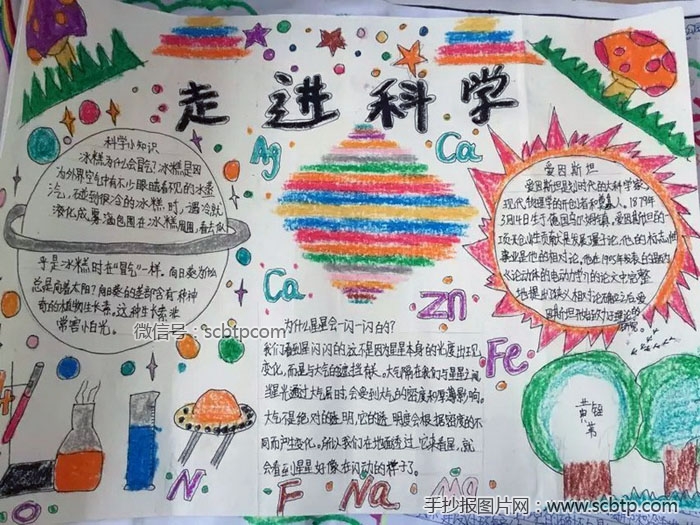 走进科学
科学小知识
冰糕为什么会冒气？冰糕是因
为外界空气中有不少眼睛看不见的水蒸
汽，碰到很冷的冰糕时，遇冷就
液化成雾滴包围在冰糕周围，看上去
乎是冰糕时在"冒气"一样。向日葵为什么
总是向着太阳？向日葵的茎部含有一种神
奇的植物生长素。这种生长素非
常害怕光。
Ag
Ca
Ca
Zn
Fe
爱因斯坦
爱因斯坦是划时代的大科学家，
现代物理学的开创者和奠基人。1879年
3月14日生于德国乌尔姆镇。爱因斯坦的一
项天创性贡献是发展量子论，他的标志
事业是他的相对论。他在1905年发表的题为
《论动体的电动力学》的论文中完整
地提出了狭义相对论
为什么星星会一闪一闪的？
我们看到星闪闪的，这不是因为星星本身的光度出现
变化，而是与大气的遮挡有关。大气隔在我们与星星之间，
当星光通过大气层时，会受到大气的密度和厚薄影响。
大气不是绝对的透明，它的透明度会根据密度的不
同而产生变化。所以我们在地面透过它来看星，就
会看到星星好像在闪动的样子了。
N
F
Na
Mg
微信号：scbtpcom
手抄报图片网：www.scbtp.com